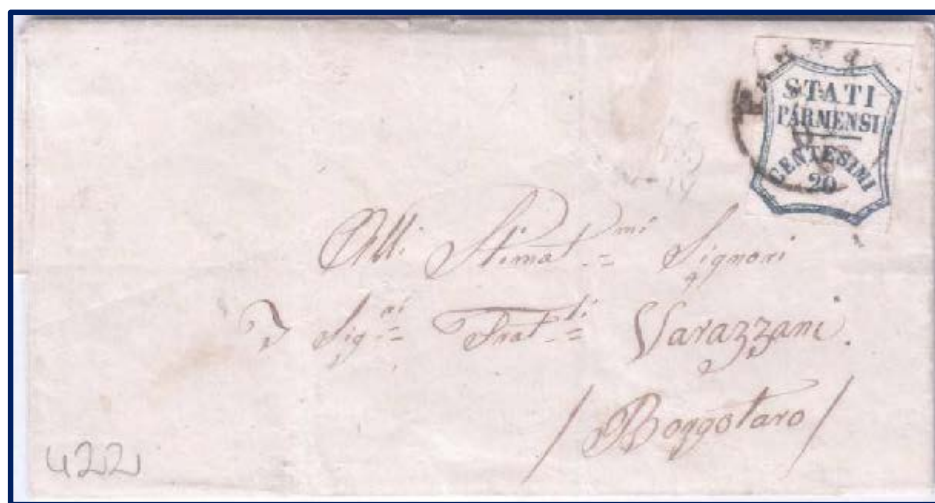 Parma
STATI
PARMENSI
CENTESIMI
20
Alli Stimat.mi Signori
I Sig.ri Frat.lli Varazzani.
/ Borgotaro /
422